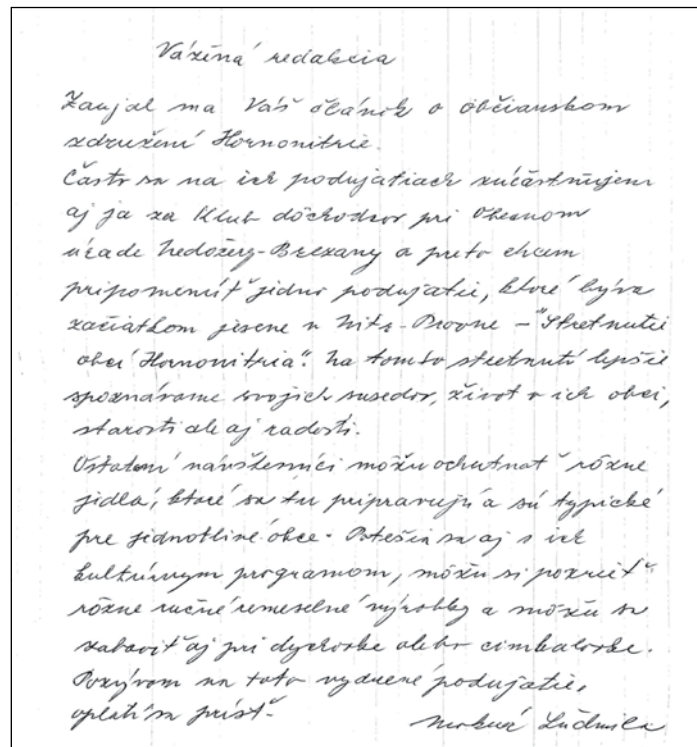 Vážená redakcia
Zaujal ma Váš článok o občianskom
združení Hornonitrie.
Často sa na ich podujatiach zúčastňujem
aj ja za Klub dôchodcov pri Obecnom
úrade Nedožery-Brezany a preto chcem
pripomenúť jedno podujatie, ktoré býva
začiatkom jesene v Nitr. Pravne – "Stretnutie
obcí Hornonitria". Na tomto stretnutí lepšie
spoznávame svojich susedov, život v ich obci,
starosti ale aj radosti.
Ostatní návštevníci môžu ochutnať rôzne
jedlá, ktoré sa tu pripravujú a sú typické
pre jednotlivé obce. Potešia sa aj s ich
kultúrnym programom, môžu si pozrieť
rôzne ručné remeselné výrobky a môžu sa
zabaviť aj pri dychovke alebo cimbalovke.
Pozývam na toto vydarené podujatie,
oplatí sa prísť.
Ľudmila